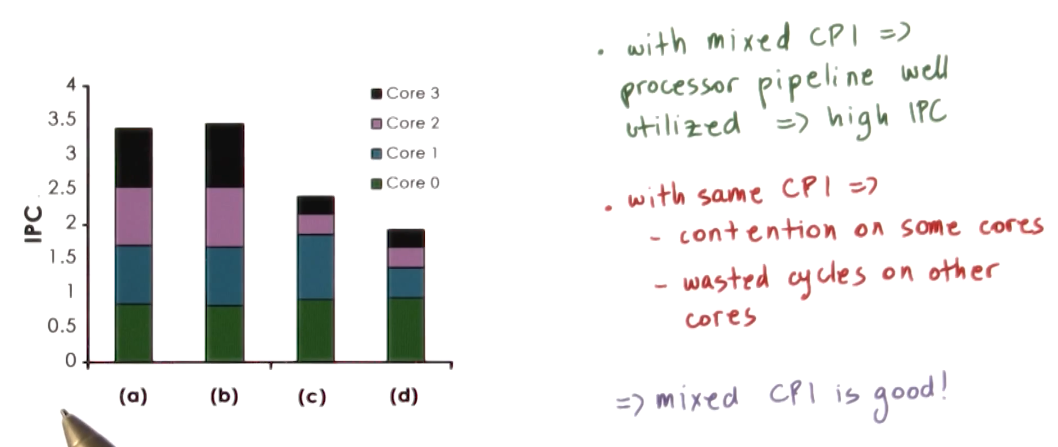 4
3.5
3
2.5
2
1.5
1
0.5
0
IPC
Core 3
Core 2
Core 1
Core 0
(a) (b) (c) (d)
• with mixed CPI =>
processor pipeline well
utilized => high IPC
• with same CPI =>
- contention on some cores
- wasted cycles on other
cores
=> mixed CPI is good!